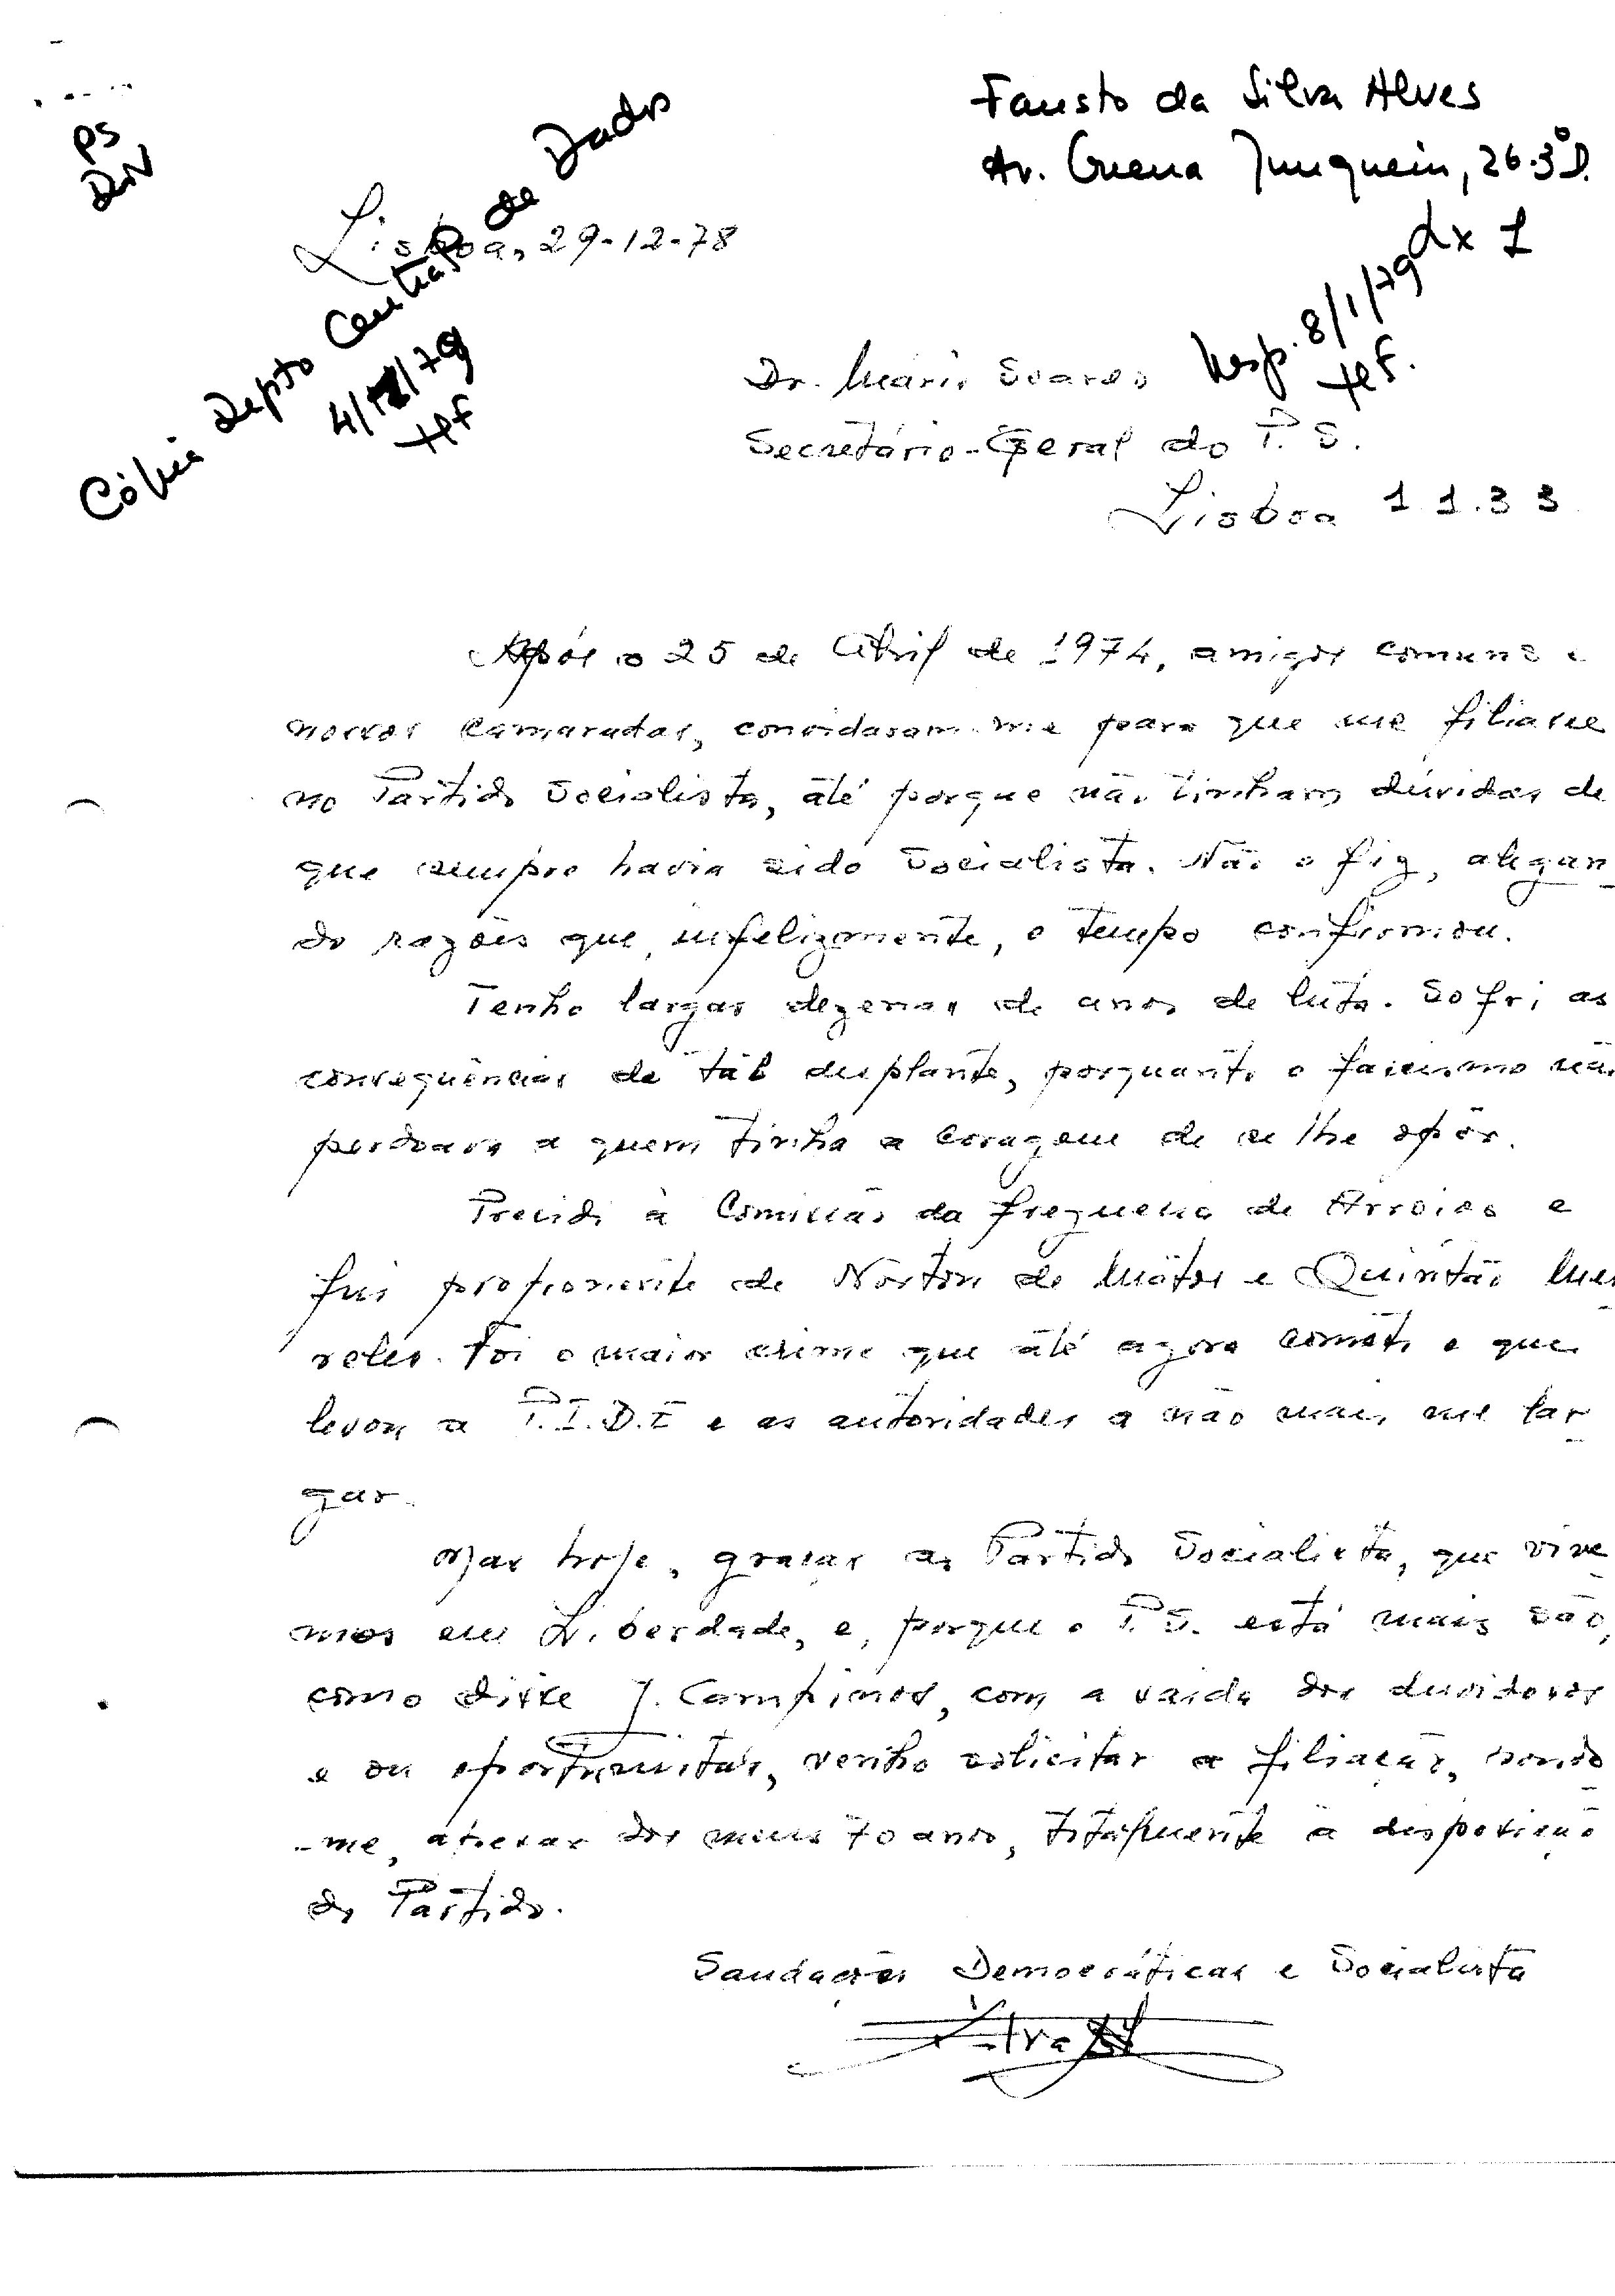 PS
Div
Fausto da Silva Alves
Av. Guerra Junqueiro, 26-3º D.
Lx 1
Cópia Depto Central de Dados
4/1/79
Lisboa, 29-12-78
Resp. 8/1/79
Dr. Mário Soares
Secretário-Geral do P. S.
Lisboa 1 1.3 3
Após o 25 de Abril de 1974, amigos comuns e
nossos camaradas, convidaram-me para que me filiasse
no Partido Socialista, até porque não tinham dúvidas de
que sempre havia sido Socialista. Não o fiz, alegan-
do razões que, infelizmente, o tempo confirmou.
Tenho largas dezenas de anos de luta. Sofri as
consequências de tal desplante, porquanto o fascismo não
perdoava a quem tinha a coragem de se lhe opôr.
Presidi à Comissão da freguesia de Arroios e
fui proponente de Norton de Matos e Quintão Mei-
reles. Foi o maior crime que até agora cometi e que
levou a P.I.D.E e as autoridades a não mais me lar-
gar.
Mas hoje, graças ao Partido Socialista, que vive-
mos em Liberdade, e, porque o P.S. está mais são,
como disse J. Campinos, com a saída dos divisores
e ou oportunistas, venho solicitar a filiação, pondo-
-me, apesar dos meus 70 anos, totalmente à disposição
do Partido.
Saudações Democráticas e Socialista